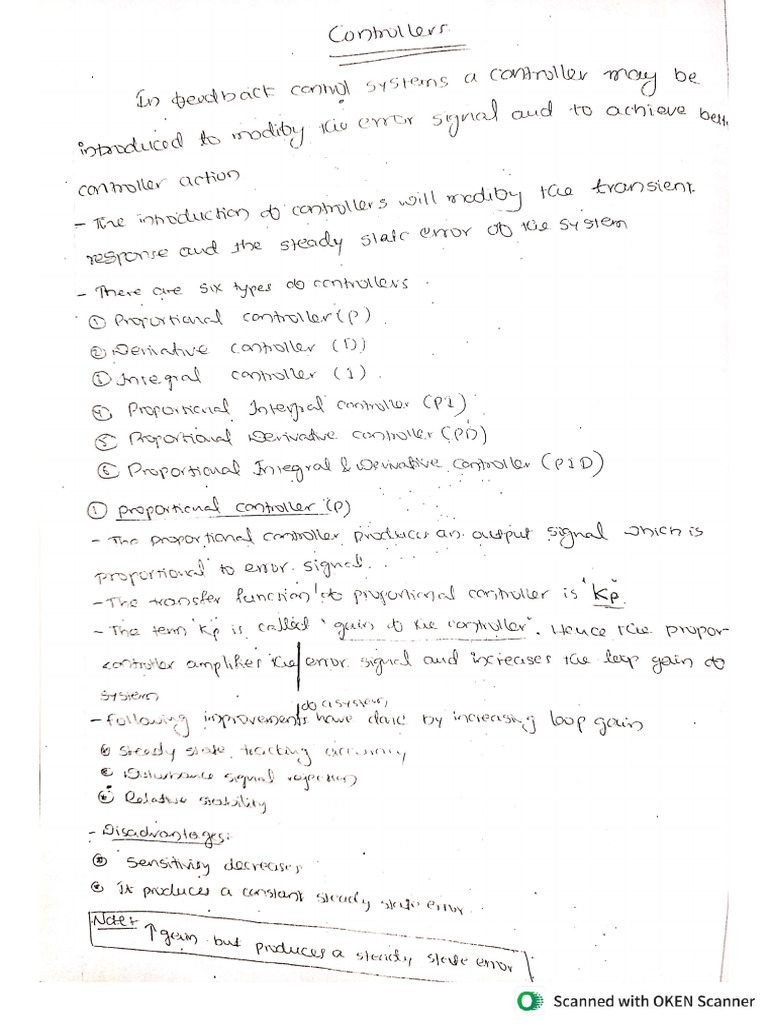 Controllers
In feedback control systems a controller may be
introduced to modify the error signal and to achieve bett
controller action
- The introduction of controllers will modify the transient
response and the steady state error of the system
- There are six types of controllers.
① Proportional controller (P)
② Derivative controller (D)
③ Integral controller (I).
④ Proportional Integral controller (PI)
⑤ Proportional Derivative controller (PD)
⑥ Proportional Integral & Derivative controller (PID)
① proportional controller (P)
- The proportional controller produces an output signal which is
proportional to error signal.
- The transfer function of proportional controller is 'Kp'
- The term 'Kp is called 'gain of the controller'. Hence the propor
controller amplifies the error signal and increases the loop gain of
system
of a system
- Following improvements have done by increasing loop gain
① steady state tracking accuracy
② Disturbance signal rejection
③ Relative stability
- Disadvantages:
① Sensitivity decreases
② It produces a constant steady state error.
Note:- ↑ gain but produces a steady state error
Scanned with OKEN Scanner